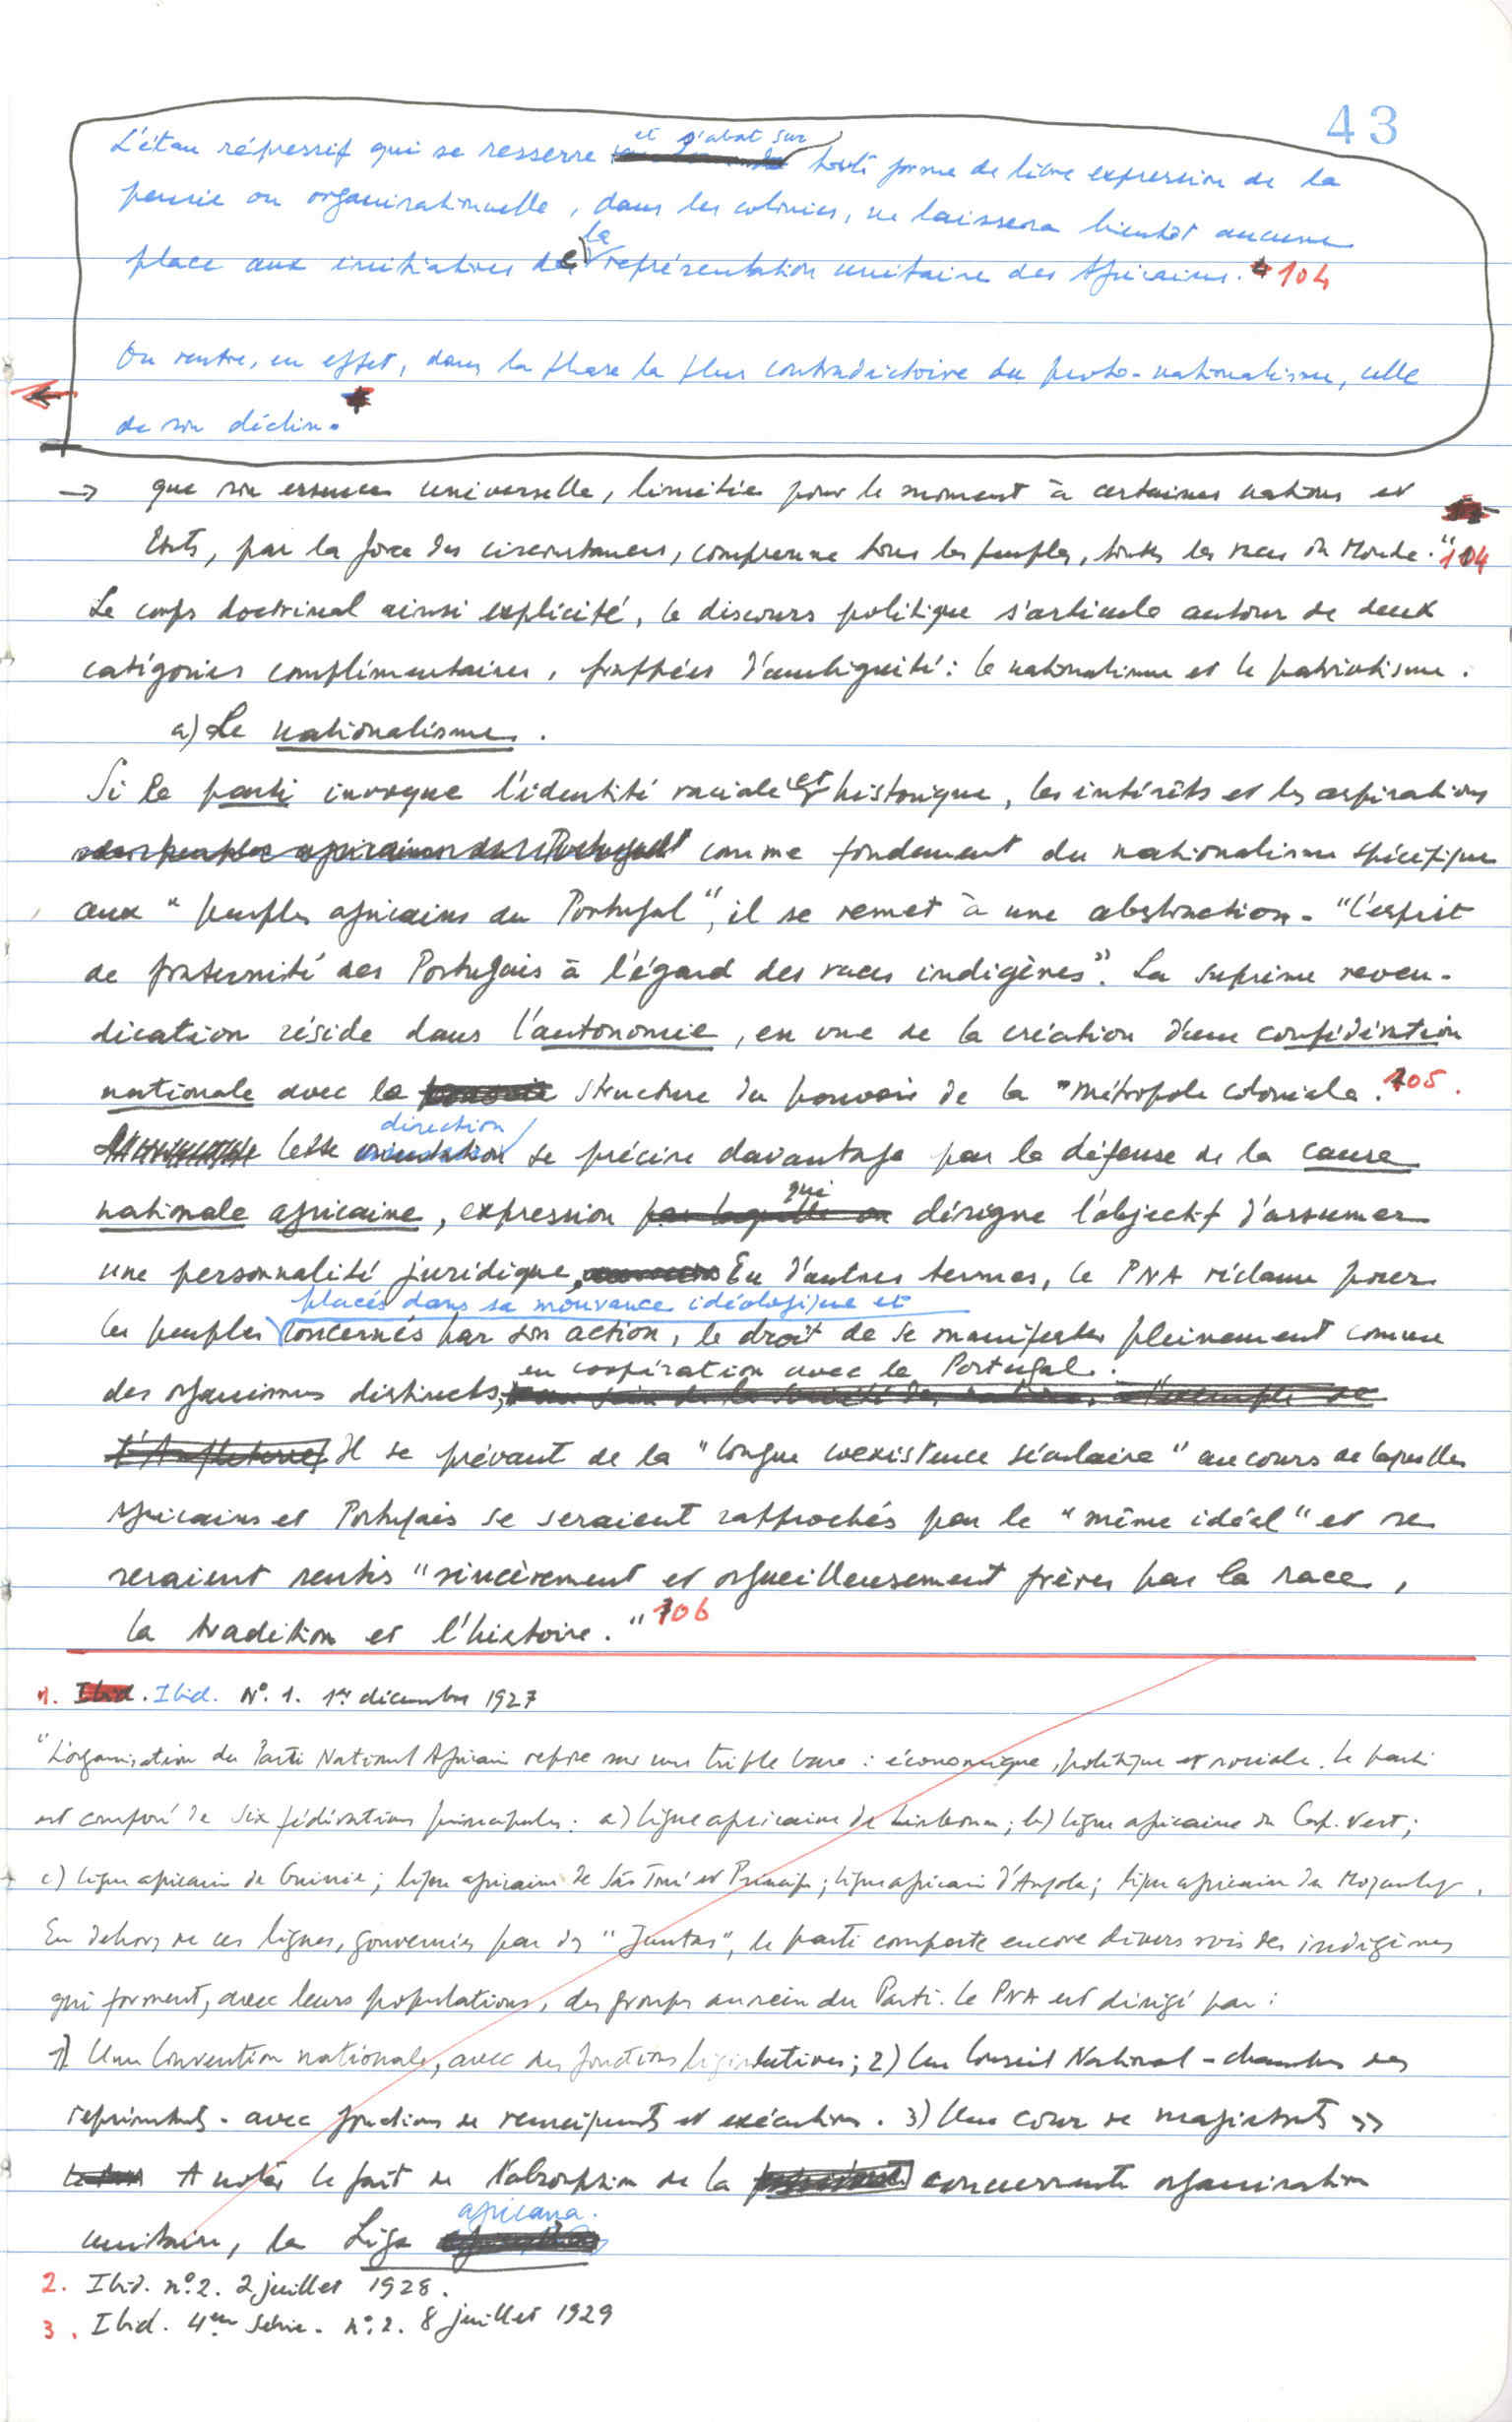 43
L'étau répressif qui se resserre et s'abat sur toute forme de libre expression de la
pensée ou organisationnelle, dans les colonies, ne laissera bientôt aucune
place aux initiatives de la représentation unitaire des Africains. 104
On rentre, en effet, dans la phase la plus contradictoire du proto-nationalisme, celle
de son déclin.
→ que son essence universelle, limitée pour le moment à certaines nations et
Etats, par la force des circonstances, comprenne tous les peuples, toutes les races du Monde." 104
Le corps doctrinal ainsi explicité, le discours politique s'articule autour de deux
catégories complémentaires, frappées d'ambiguité: le nationalisme et le patriotisme.
a) Le nationalisme.
Si le parti invoque l'identité raciale et historique, les intérêts et les aspirations
comme fondement du nationalisme spécifique
aux "peuples africains du Portugal", il se remet à une abstraction - "l'esprit
de fraternité des Portugais à l'égard des races indigènes". La suprême reven-
dication réside dans l'autonomie, en vue de la création d'une confédération
nationale avec la structure du pouvoir de la "métropole coloniale. 105.
Cette direction se précise davantage par la défense de la cause
nationale africaine, expression qui désigne l'objectif d'assumer
une personnalité juridique. En d'autres termes, le PNA réclame pour
les peuples placés dans sa mouvance idéologique et concernés par son action, le droit de se manifester pleinement comme
des organismes distincts, en coopération avec le Portugal.
Il se prévaut de la "longue coexistence séculaire" au cours de laquelle
Africains et Portugais se seraient rapprochés par le "même idéal" et se
seraient sentis "sincèrement et orgueilleusement frères par la race,
la tradition et l'histoire." 106
1. Ibid. Nº. 1. 1er décembre 1927
"L'organisation du Parti National Africain repose sur une triple base: économique, politique et sociale. Le parti
est composé de six fédérations principales: a) Ligue africaine de Lisbonne; b) Ligue africaine du Cap. Vert;
c) Ligue africaine de Guinée; ligue africaine de São Tomé et Principe; ligue africaine d'Angola; ligue africaine du Mozambique.
En dehors de ces ligues, gouvernées par des "Juntas", le parti comporte encore divers rois des indigènes
qui forment, avec leurs populations, des groupes au sein du Parti. Le PNA est dirigé par:
1) Une Convention nationale, avec des fonctions législatives; 2) Un Conseil National - chambre des
représentants - avec fonctions de et exécutives. 3) Une cour de magistrats >>
A noter le fait de l'absorption de la concurrente organisation
unitaire, la Liga africana.
2. Ibid. nº.2. 2 juillet 1928.
3. Ibid. 4eme Série. nº.2. 8 juillet 1929